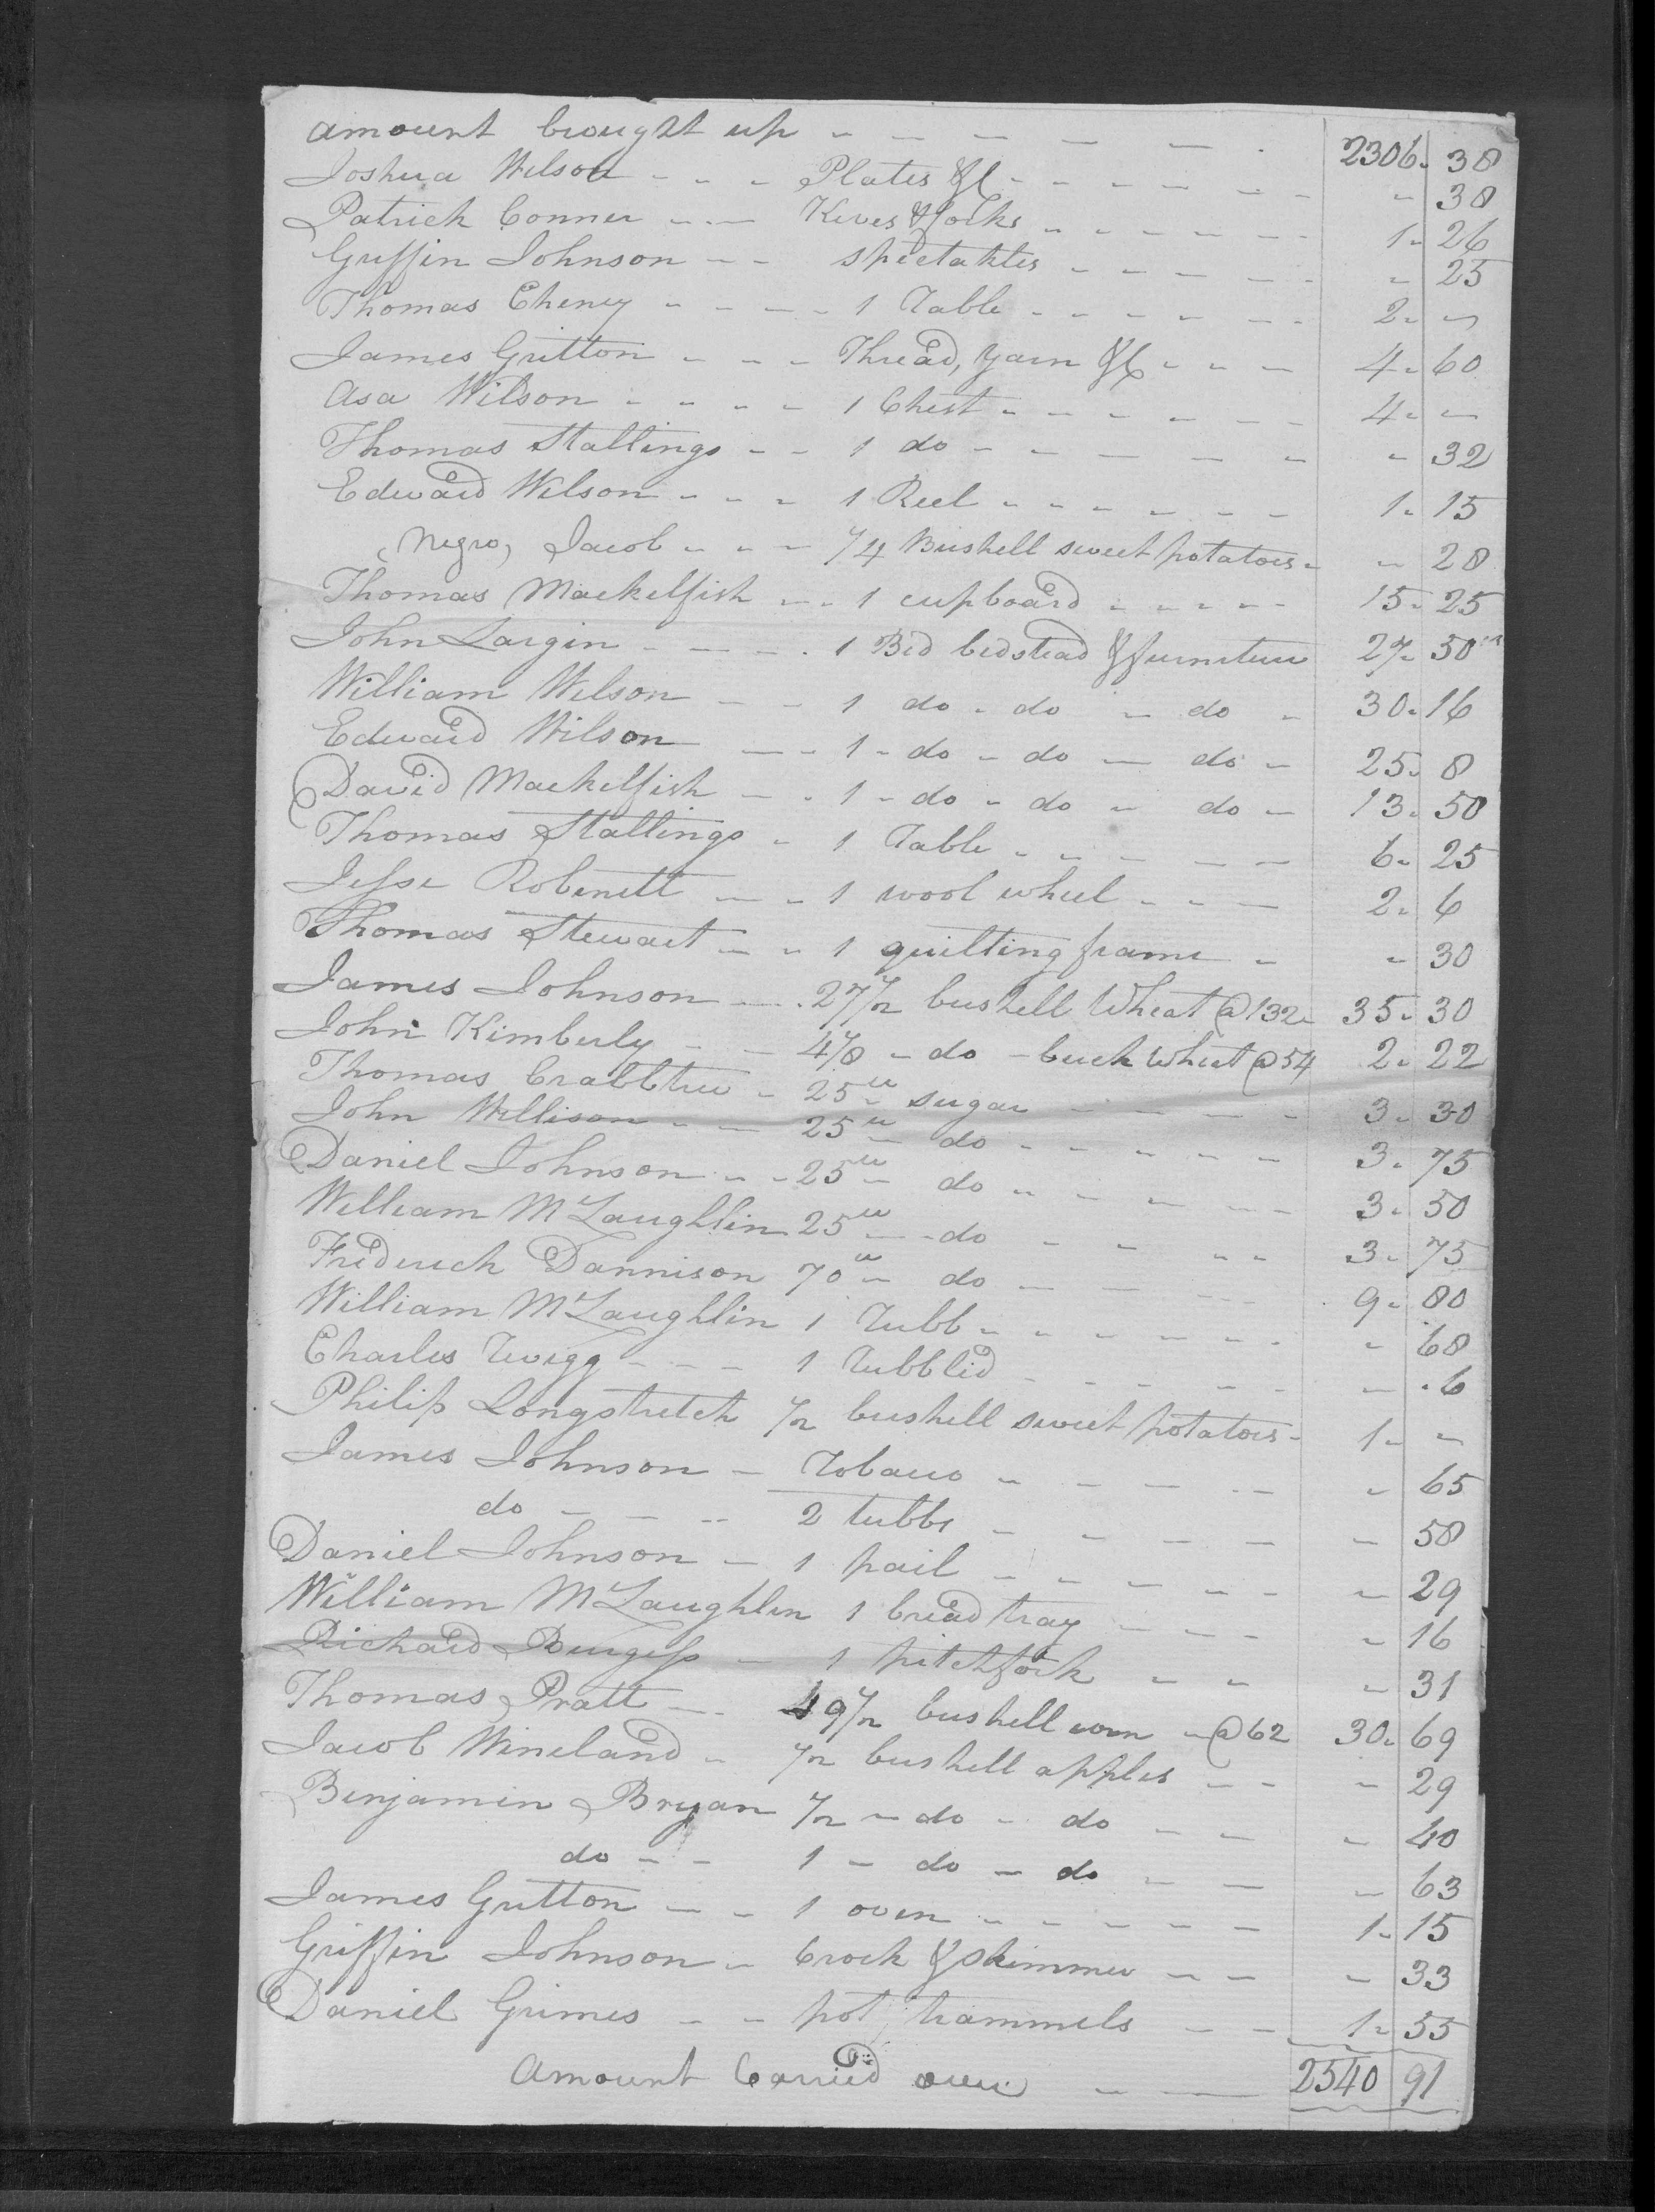 amount brought up - - - - - - 2306. 38
Joshua Wilson - - - Plates &c - - - - - - - " 38
Patrick Conner - - - Kives & forks - - - - - - 1 " 26
Griffin Johnson - - spectakles - - - - - - " 25
Thomas Cheney - - - - 1 Table - - - - - - 2 " "
James Gritton - - - Thread, yarn &c - - - 4 " 60
Asa Wilson - - - - 1 Chest - - - - - - 4 " "
Thomas Stallings - - 1 do - - - - - - " 32
Edward Wilson - - - 1 Reel - - - - - - 1 " 15
(Negro) Jacob - - - 1/4 Bushell sweet potatoes - " 28
Thomas Mackelfish - - 1 cupboard - - - - - 15 " 25
John Largin - - - - 1 Bed bedstead & furniture 27 " 50
William Wilson - - 1 do - do - do - 30 " 16
Edward Wilson - - 1 - do - do - do - 25 " 8
David Mackelfish - - 1 - do - do - do - 13 " 50
Thomas Stallings - 1 Table - - - - - 6 " 25
Jesse Robinett - - 1 wool wheel - - - 2 " 6
Thomas Stewart - - 1 quilting frame - " 30
James Johnson - - 27 1/2 bushell Wheat @ 132 - 35 " 30
John Kimberly - - 4 1/8 - do - buck wheat @ 54 2 " 22
Thomas Crabbtree - 25 lb sugar - - - - - 3 " 30
John Willison - - 25 lb do - - - - - - 3 " 75
Daniel Johnson - - 25 lb do - - - - - 3 " 50
William McLaughlin 25 lb - do - - - - 3 " 75
Frederick Dannison 70 lb do - - - 9 " 80
William McLaughlin 1 Tubb - - - - - - - " 68
Charles Twigg - - - 1 Tubb lid - - - - - - " 6
Philip Longstretch 1/2 bushell sweet potatoes - 1 " "
James Johnson - Tobacco - - - - - " 65
do - - - 2 tubbs - - - - - " 58
Daniel Johnson - 1 pail - - - - - - " 29
William McLaughlin 1 bread tray - - - " 16
Richard Burgess - 1 pitchfork - - " 31
Thomas Pratt - - 49 1/2 bushell corn - @ 62 30 " 69
Jacob Wineland - 1/2 bushell apples - - " 29
Benjamin Bryan 1/2 - do - do - - " 40
do - - 1 - do - do - - " 63
James Gritton - - 1 oven - - - - - - 1 " 15
Griffin Johnson - Crock & skimmer - - " 33
Daniel Grimes - - pot trammels - - 1 " 55
Amount Carried over - - 2540 91